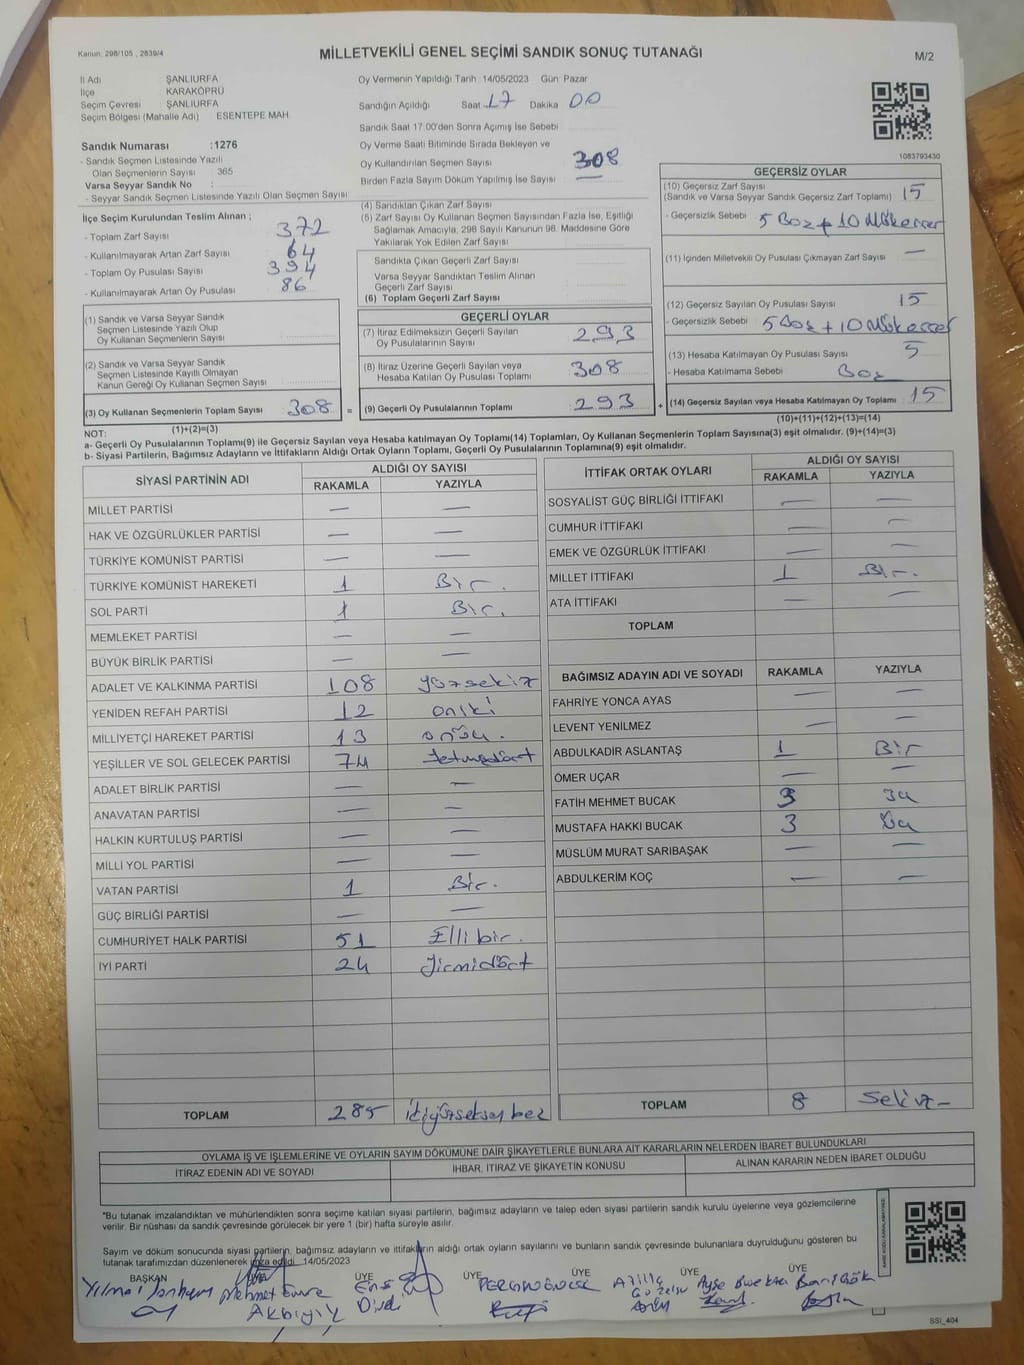 Kanun, 298/105 , 2839/4
MİLLETVEKİLİ GENEL SEÇİMİ SANDIK SONUÇ TUTANAĞI
M/2
İl Adı : ŞANLIURFA
İlçe : KARAKÖPRÜ
Seçim Çevresi : ŞANLIURFA
Seçim Bölgesi (Mahalle Adı) ESENTEPE MAH.
Oy Vermenin Yapıldığı Tarih :14/05/2023 Gün: Pazar
Sandığın Açıldığı Saat 17 Dakika 00
Sandık Saat 17:00'den Sonra Açımış İse Sebebi
Oy Verme Saati Bitiminde Sırada Bekleyen ve
Oy Kullandırılan Seçmen Sayısı 308
Birden Fazla Sayım Döküm Yapılmış İse Sayısı —
1083793430
Sandık Numarası :1276
- Sandık Seçmen Listesinde Yazılı
Olan Seçmenlerin Sayısı : 365
Varsa Seyyar Sandık No :
- Seyyar Sandık Seçmen Listesinde Yazılı Olan Seçmen Sayısı
İlçe Seçim Kurulundan Teslim Alınan ;
- Toplam Zarf Sayısı 372
- Kullanılmayarak Artan Zarf Sayısı 64
- Toplam Oy Pusulası Sayısı 394
- Kullanılmayarak Artan Oy Pusulası 86
(1) Sandık ve Varsa Seyyar Sandık
Seçmen Listesinde Yazılı Olup
Oy Kullanan Seçmenlerin Sayısı
(2) Sandık ve Varsa Seyyar Sandık
Seçmen Listesinde Kayıtlı Olmayan
Kanun Gereği Oy Kullanan Seçmen Sayısı
(3) Oy Kullanan Seçmenlerin Toplam Sayısı 308 =
(1)+(2)=(3)
(4) Sandıktan Çıkan Zarf Sayısı
(5) Zarf Sayısı Oy Kullanan Seçmen Sayısından Fazla İse, Eşitliği
Sağlamak Amacıyla, 298 Sayılı Kanunun 98. Maddesine Göre
Yakılarak Yok Edilen Zarf Sayısı
Sandıkta Çıkan Geçerli Zarf Sayısı
Varsa Seyyar Sandıktan Teslim Alınan
Geçerli Zarf Sayısı
(6) Toplam Geçerli Zarf Sayısı
GEÇERLİ OYLAR
(7) İtiraz Edilmeksizin Geçerli Sayılan
Oy Pusulalarının Sayısı 293
(8) İtiraz Üzerine Geçerli Sayılan veya
Hesaba Katılan Oy Pusulası Toplamı 308
(9) Geçerli Oy Pusulalarının Toplamı 293 +
GEÇERSİZ OYLAR
(10) Geçersiz Zarf Sayısı
(Sandık ve Varsa Seyyar Sandık Geçersiz Zarf Toplamı) 15
- Geçersizlik Sebebi 5 Boz + 10 Mükerrer
(11) İçinden Milletvekili Oy Pusulası Çıkmayan Zarf Sayısı —
(12) Geçersiz Sayılan Oy Pusulası Sayısı 15
- Geçersizlik Sebebi 5 Boz + 10 Mükerrer
(13) Hesaba Katılmayan Oy Pusulası Sayısı 5
- Hesaba Katılmama Sebebi Boz
(14) Geçersiz Sayılan veya Hesaba Katılmayan Oy Toplamı 15
(10)+(11)+(12)+(13)=(14)
NOT:
a- Geçerli Oy Pusulalarının Toplamı(9) ile Geçersiz Sayılan veya Hesaba katılmayan Oy Toplamı(14) Toplamları, Oy Kullanan Seçmenlerin Toplam Sayısına(3) eşit olmalıdır. (9)+(14)=(3)
b- Siyasi Partilerin, Bağımsız Adayların ve İttifakların Aldığı Ortak Oyların Toplamı, Geçerli Oy Pusulalarının Toplamına(9) eşit olmalıdır.
SİYASİ PARTİNİN ADI
ALDIĞI OY SAYISI
RAKAMLA YAZIYLA
MİLLET PARTİSİ — —
HAK VE ÖZGÜRLÜKLER PARTİSİ — —
TÜRKİYE KOMÜNİST PARTİSİ — —
TÜRKİYE KOMÜNİST HAREKETİ 1 Bir.
SOL PARTİ 1 Bir.
MEMLEKET PARTİSİ — —
BÜYÜK BİRLİK PARTİSİ — —
ADALET VE KALKINMA PARTİSİ 108 yüzsekiz
YENİDEN REFAH PARTİSİ 12 oniki
MİLLİYETÇİ HAREKET PARTİSİ 13 onüç.
YEŞİLLER VE SOL GELECEK PARTİSİ 74 Yetmişdört
ADALET BİRLİK PARTİSİ — —
ANAVATAN PARTİSİ — —
HALKIN KURTULUŞ PARTİSİ — —
MİLLİ YOL PARTİSİ — —
VATAN PARTİSİ 1 Bir.
GÜÇ BİRLİĞİ PARTİSİ — —
CUMHURİYET HALK PARTİSİ 51 Elli bir.
İYİ PARTİ 24 Yirmidört
TOPLAM 285 ikiyüzseksen beş
İTTİFAK ORTAK OYLARI
ALDIĞI OY SAYISI
RAKAMLA YAZIYLA
SOSYALİST GÜÇ BİRLİĞİ İTTİFAKI — —
CUMHUR İTTİFAKI — —
EMEK VE ÖZGÜRLÜK İTTİFAKI — —
MİLLET İTTİFAKI 1 Bir.
ATA İTTİFAKI — —
TOPLAM
BAĞIMSIZ ADAYIN ADI VE SOYADI RAKAMLA YAZIYLA
FAHRİYE YONCA AYAS — —
LEVENT YENİLMEZ — —
ABDULKADIR ASLANTAŞ 1 Bir
ÖMER UÇAR — —
FATİH MEHMET BUCAK 3 3ü
MUSTAFA HAKKI BUCAK 3
MÜSLÜM MURAT SARIBAŞAK — —
ABDULKERİM KOÇ — —
TOPLAM 8 Sekiz
OYLAMA İŞ VE İŞLEMLERİNE VE OYLARIN SAYIM DÖKÜMÜNE DAİR ŞİKAYETLERLE BUNLARA AİT KARARLARIN NELERDEN İBARET BULUNDUKLARI
İTİRAZ EDENİN ADI VE SOYADI
İHBAR, İTİRAZ VE ŞİKAYETİN KONUSU
ALINAN KARARIN NEDEN İBARET OLDUĞU
*Bu tutanak imzalandıktan ve mühürlendikten sonra seçime katılan siyasi partilerin, bağımsız adayların ve talep eden siyasi partilerin sandık kurulu üyelerine veya gözlemcilerine
verilir. Bir nüshası da sandık çevresinde görülecek bir yere 1 (bir) hafta süreyle asılır.
Sayım ve döküm sonucunda siyasi partilerin, bağımsız adayların ve ittifakların aldığı ortak oyların sayılarını ve bunların sandık çevresinde bulunanlara duyrulduğunu gösteren bu
tutanak tarafımızdan düzenlenerek imza edildi. 14/05/2023
BAŞKAN ÜYE ÜYE ÜYE ÜYE ÜYE
Mehmet Emre
Akbıyık
SSI_404